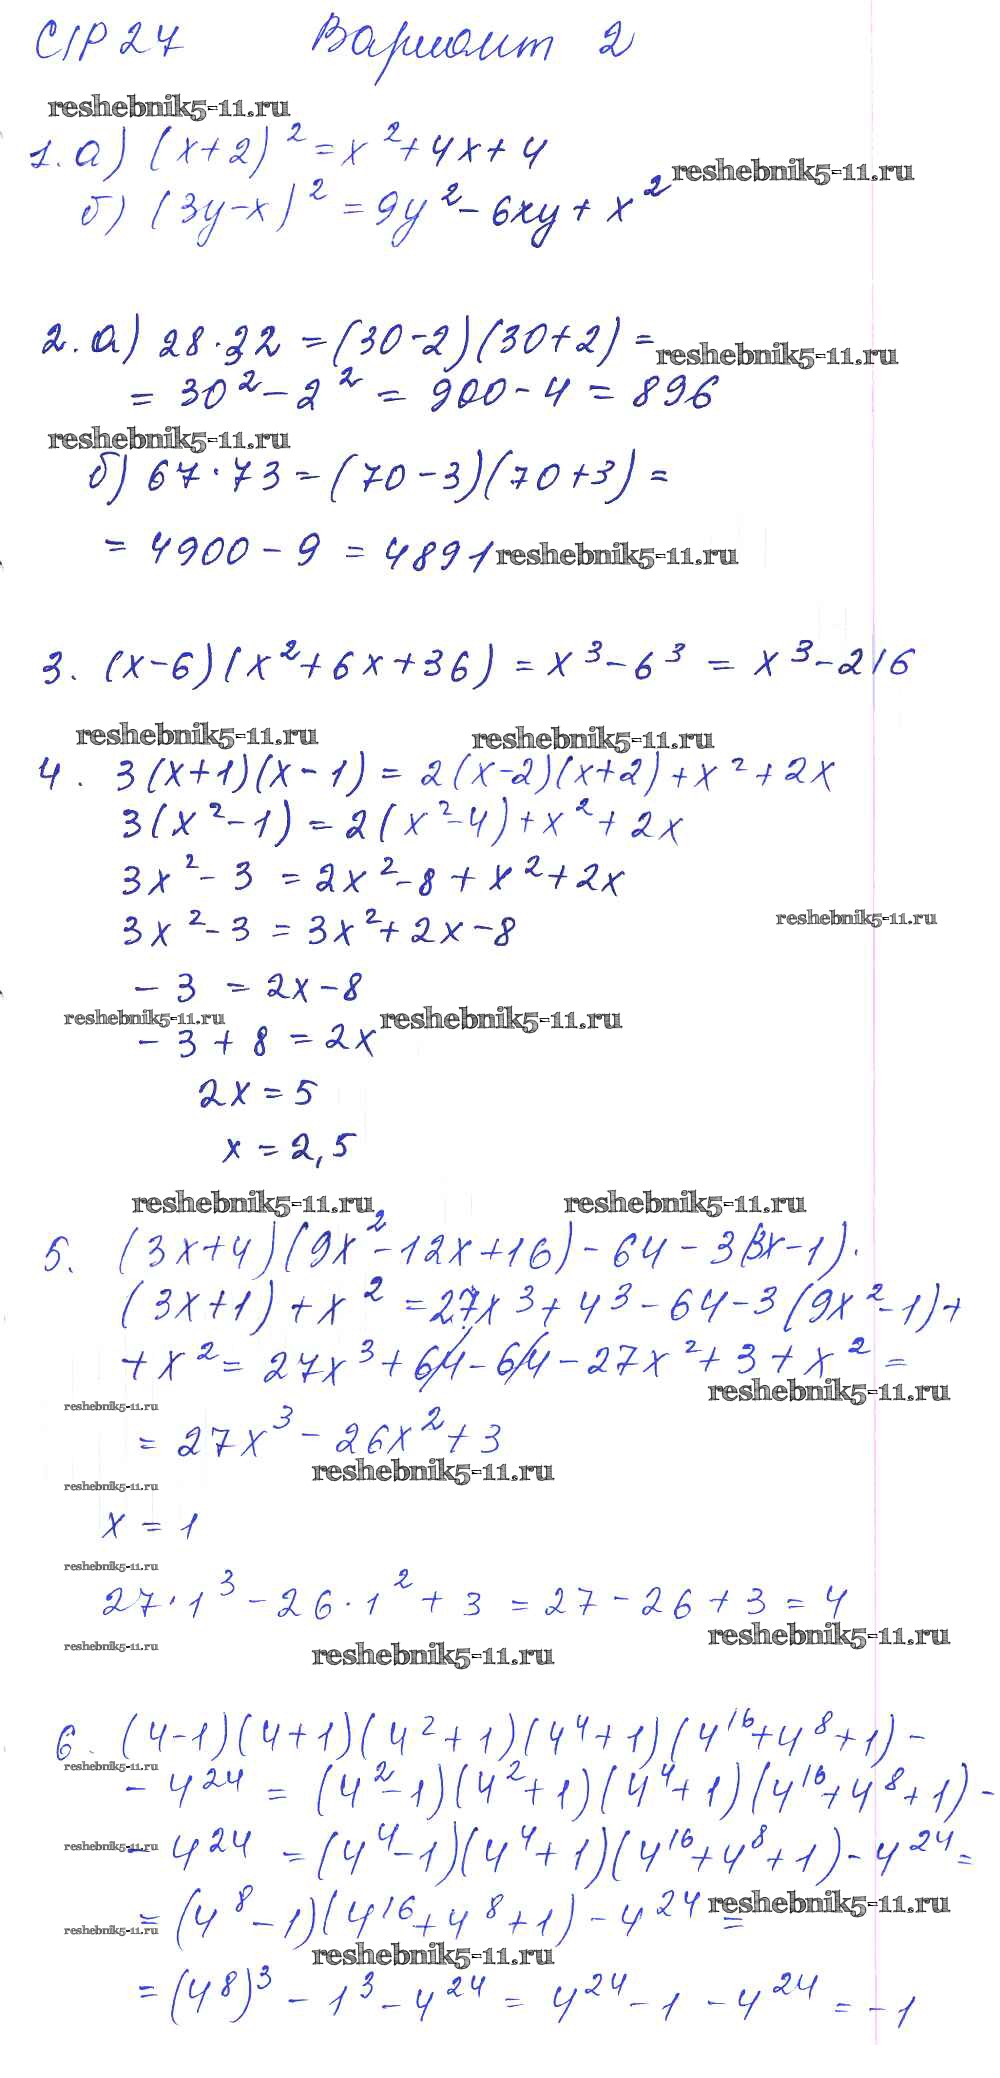 С/Р 27 Вариант 2
reshebnik5-11.ru
1. а) (x+2)² = x² + 4x + 4
reshebnik5-11.ru
б) (3y-x)² = 9y² - 6xy + x²
2. а) 28·32 = (30-2)(30+2) =
reshebnik5-11.ru
= 30² - 2² = 900 - 4 = 896
reshebnik5-11.ru
б) 67·73 = (70-3)(70+3) =
= 4900 - 9 = 4891
reshebnik5-11.ru
3. (x-6)(x²+6x+36) = x³ - 6³ = x³ - 216
reshebnik5-11.ru reshebnik5-11.ru
4. 3(x+1)(x-1) = 2(x-2)(x+2) + x² + 2x
3(x²-1) = 2(x²-4) + x² + 2x
3x² - 3 = 2x² - 8 + x² + 2x
reshebnik5-11.ru
3x² - 3 = 3x² + 2x - 8
- 3 = 2x - 8
reshebnik5-11.ru reshebnik5-11.ru
- 3 + 8 = 2x
2x = 5
x = 2,5
reshebnik5-11.ru reshebnik5-11.ru
5. (3x+4)(9x²-12x+16) - 64 - 3(3x-1)·
(3x+1) + x² = 27x³ + 4³ - 64 - 3(9x²-1) +
+ x² = 27x³ + 64 - 64 - 27x² + 3 + x² =
reshebnik5-11.ru reshebnik5-11.ru
= 27x³ - 26x² + 3
reshebnik5-11.ru
reshebnik5-11.ru
x = 1
reshebnik5-11.ru
27·1³ - 26·1² + 3 = 27 - 26 + 3 = 4
reshebnik5-11.ru reshebnik5-11.ru reshebnik5-11.ru
6. (4-1)(4+1)(4²+1)(4⁴+1)(4¹⁶+4⁸+1) -
reshebnik5-11.ru
- 4²⁴ = (4²-1)(4²+1)(4⁴+1)(4¹⁶+4⁸+1) -
reshebnik5-11.ru
- 4²⁴ = (4⁴-1)(4⁴+1)(4¹⁶+4⁸+1) - 4²⁴ =
reshebnik5-11.ru reshebnik5-11.ru
= (4⁸-1)(4¹⁶+4⁸+1) - 4²⁴ =
reshebnik5-11.ru
= (4⁸)³ - 1³ - 4²⁴ = 4²⁴ - 1 - 4²⁴ = -1